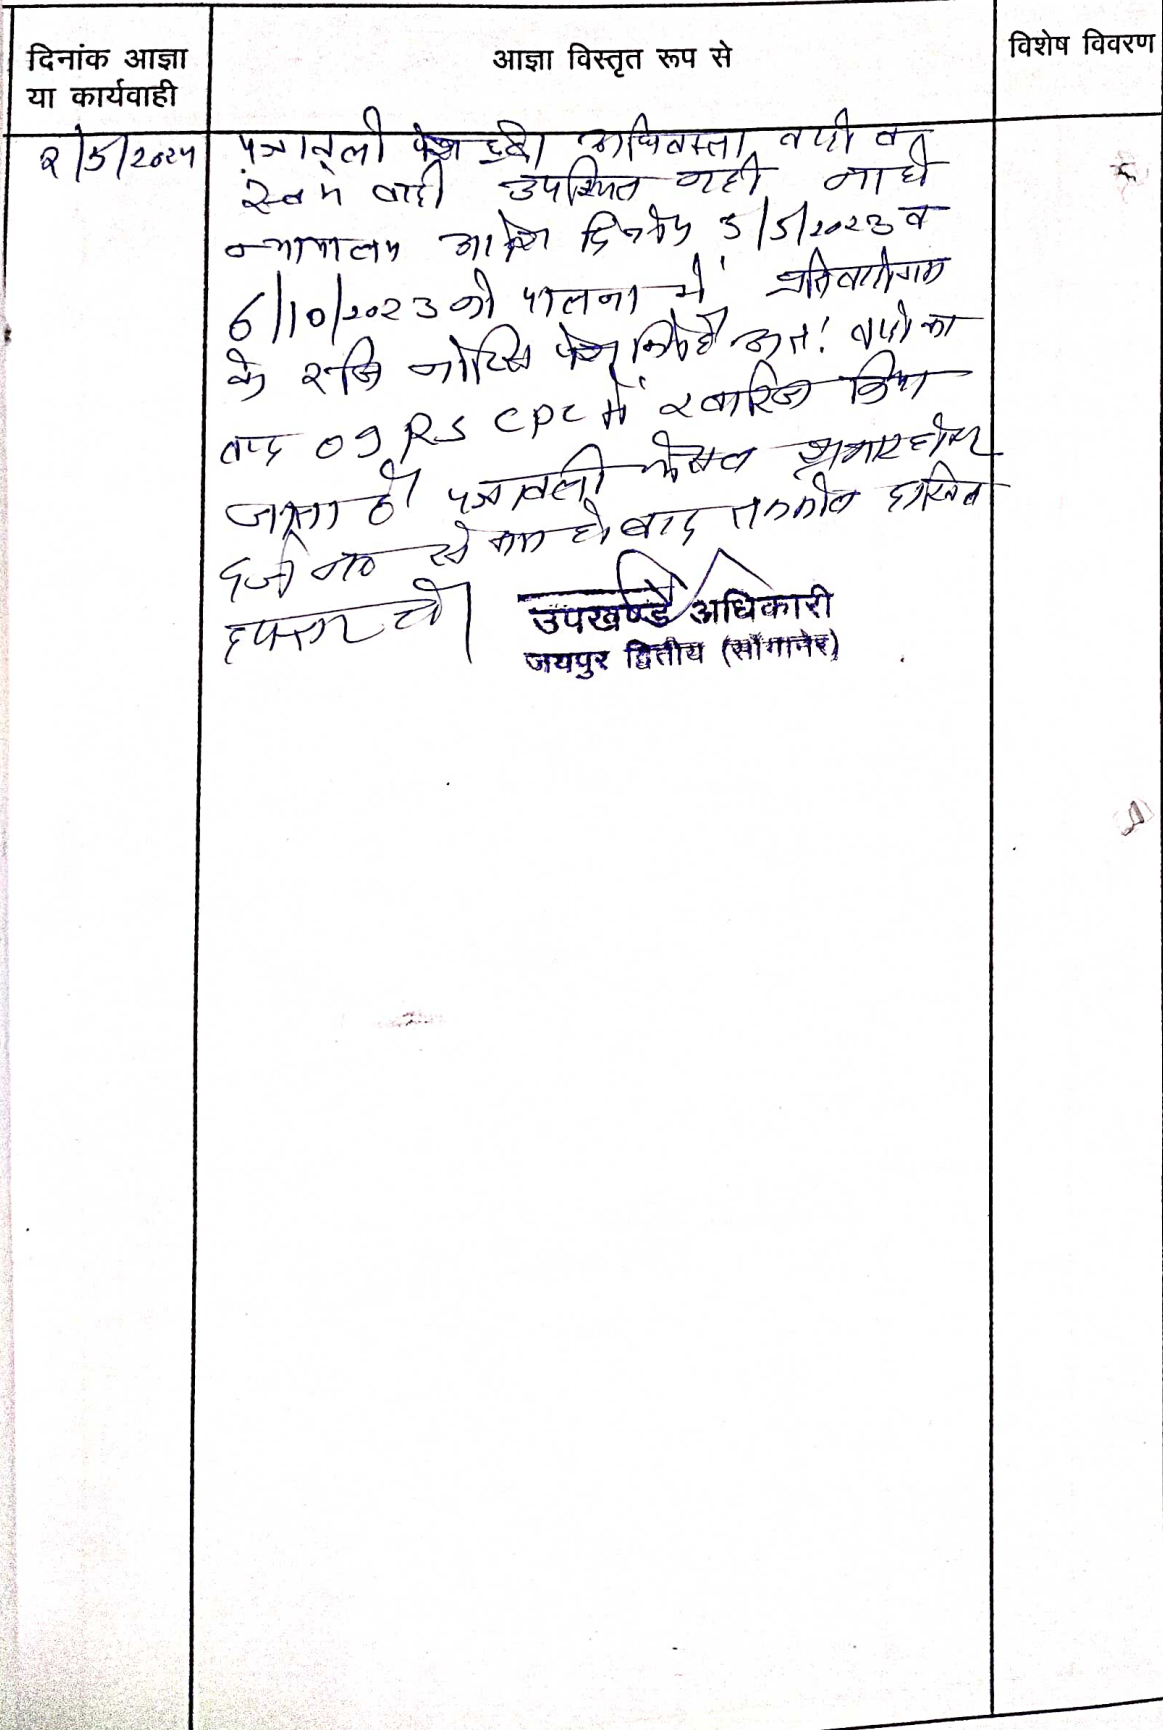 दिनांक आज्ञा
या कार्यवाही
आज्ञा विस्तृत रूप से
विशेष विवरण
2/5/2024
पत्रावली पेश हुई। अधिवक्ता वादी व
स्वयं वादी उपस्थित नही
न्यायालय आदेश दिनांक 5/5/2023 व
6/10/2023 की पालना में प्रतिवादीगण
के रजि नोटिस पेश किये है अत: वादी का
वाद 09 R5 CPC में खारिज किया
जाता है। पत्रावली फैसल शुमार होकर
दर्ज नं0 से कम हो बाद तकमील दाखिल
दफ्तर हो।
उपखण्ड अधिकारी
जयपुर द्वितीय (सांगानेर)